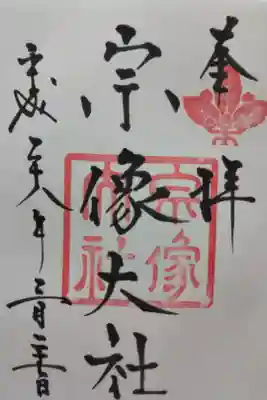 奉拝
宗像大社
平成二十八年三月二十一日
宗像大社